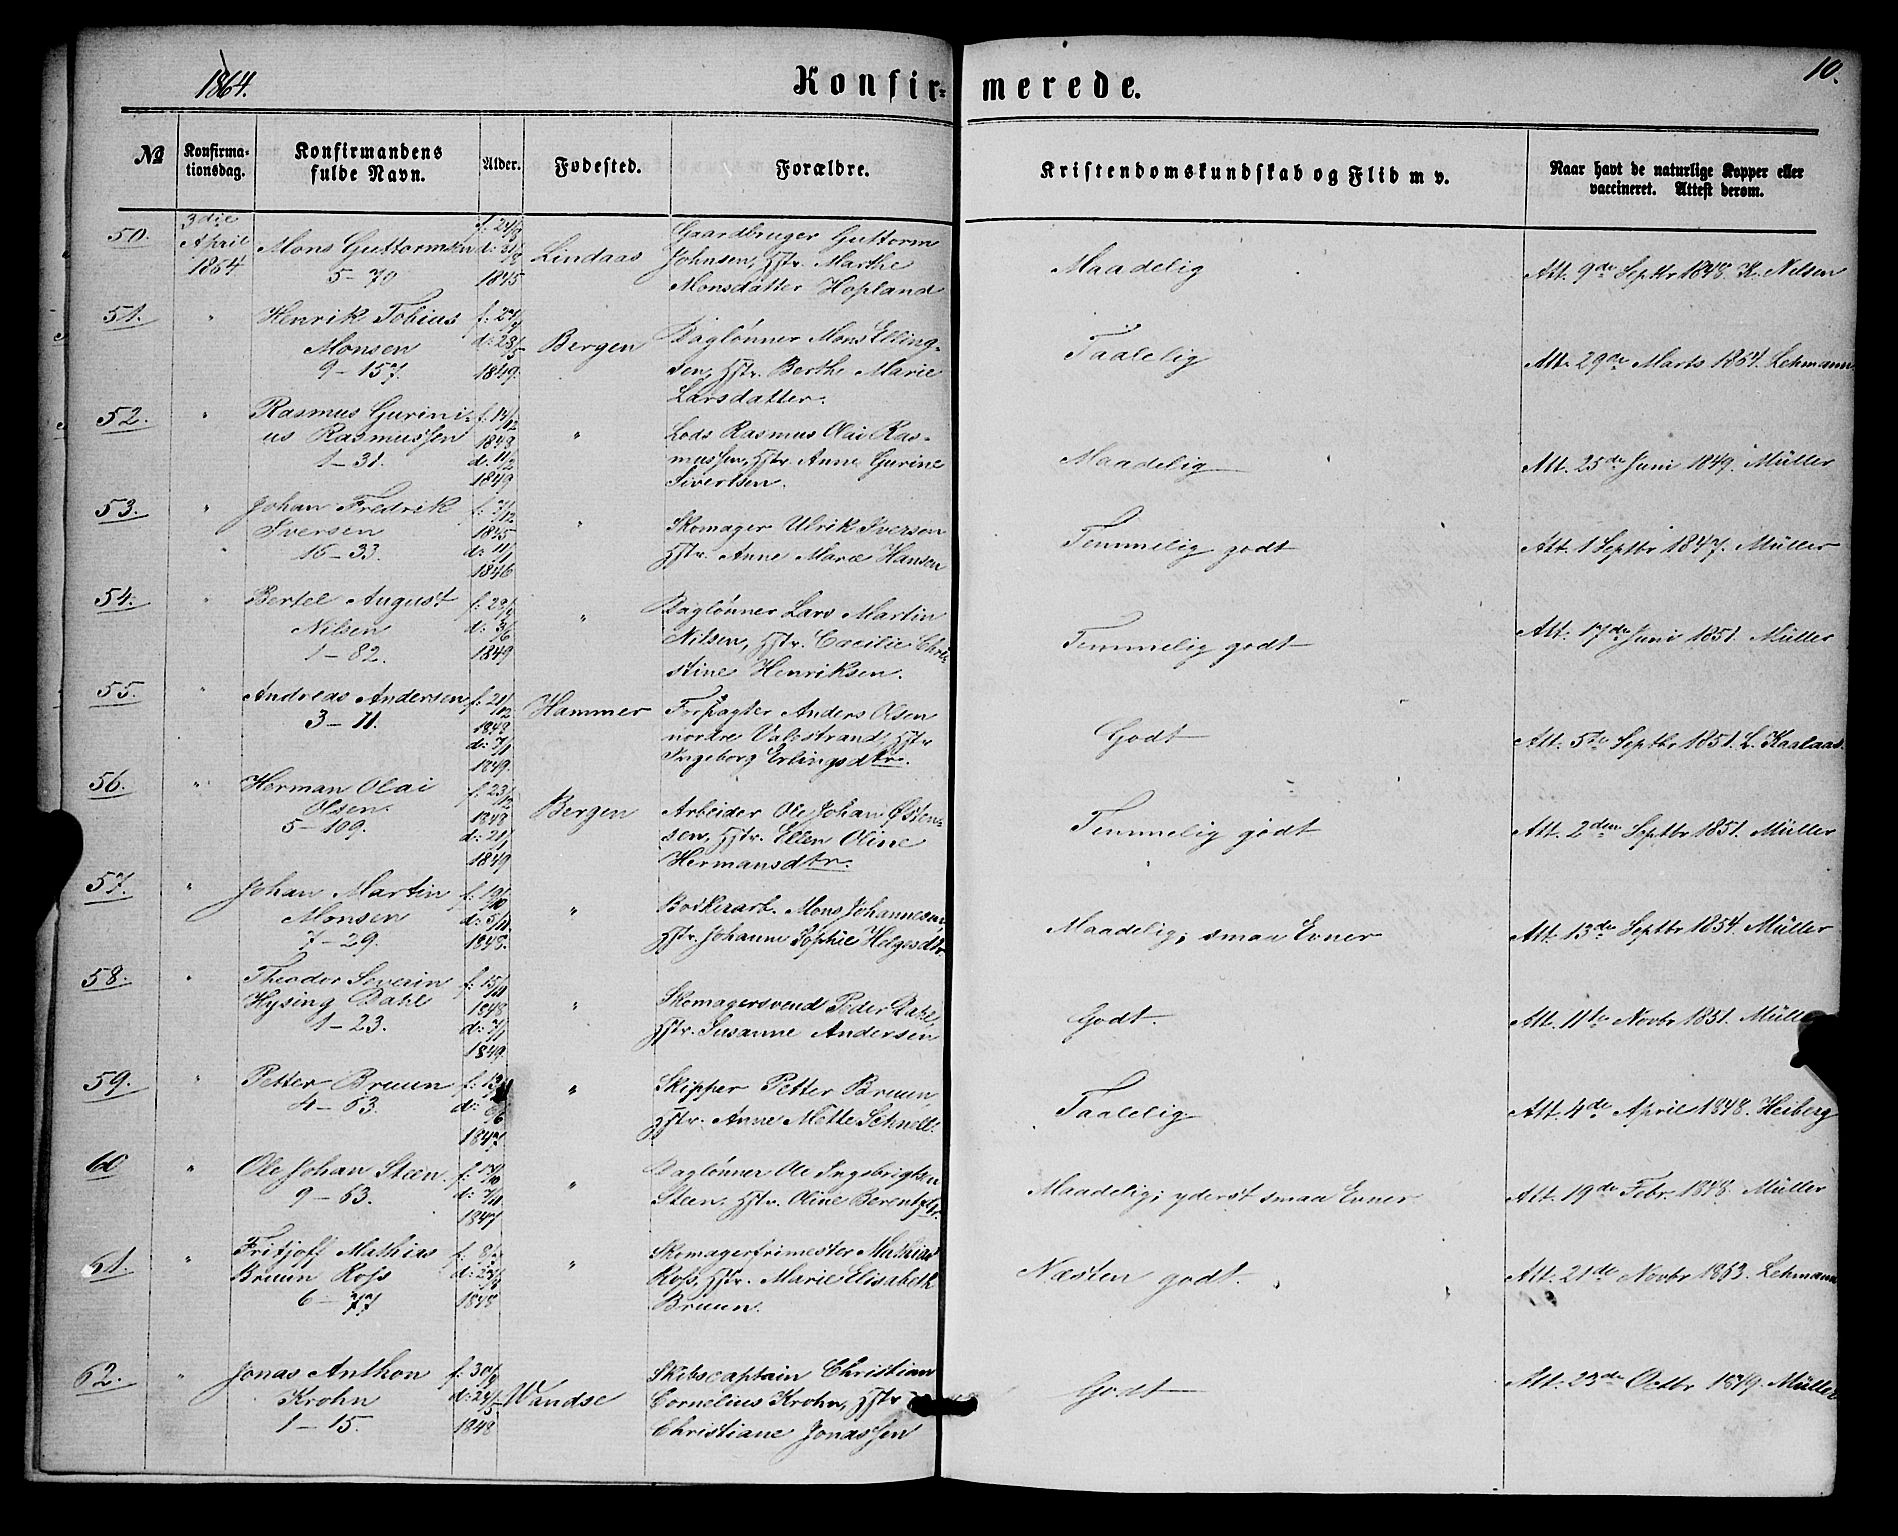 1864.
Konfir-
merede.
10.
№
Konfirma-
tionsdag.
Konfirmandens
fulde Navn.
Alder.
Fødested.
Forældre.
Kristendomskundskab og Flid m v.
Naar havt de naturlige Kopper eller
vaccineret. Attest derom.
50.
3die
April
1864
Mons Guttormsen
5-70
1845
Lindaas
Gaardbruger Guttorm
Johnsen, Hstr. Marthe
Monsdatter Hopland
Maadelig
Att. 9de Septbr 1848. K. Nelsen
51.
"
Henrik Tobias
Monsen
9-157.
1849.
Bergen
Daglønner Mons Elling-
sen, Hstr. Berthe Marie
Larsdatter.
Taalelig
Att. 29de Marts 1864. Lehmann
52.
"
Rasmus Gurini-
us Rasmussen
1-31.
f. 14/12
1848
d. 11/2
1849
"
Lods Rasmus Olai Ras-
mussen, Hstr. Anne Gurine
Sivertsen.
Maadelig
Att. 25de Juni 1849. Müller
53.
"
Johan Fredrik
Iversen
16-33.
f. 7/12
1845
d: 11/1
1846
"
Skomager Ulrik Iversen
Hstr. Anne Marie Hansen
Temmelig godt
Att. 1 Septbr 1847. Müller
54.
"
Bertel August
Nilsen
1-82.
d: 3/6
1849
"
Daglønner Lars Martin
Nilsen, Hstr. Cæcilie Chri-
stine Henriksen.
Temmelig godt
Att. 17de Juni 1851. Müller
55.
"
Andreas Andersen
3-11.
f. 21/12
1848
d: 7/1
1849.
Hammer
Forpagter Anders Olsen
nordre Valestrand, Hstr
Ingeborg Erlingsdtr.
Godt
Att. 5te Septbr 1851. L. Kaalaas
56.
"
Herman Olai
Olsen.
5-109.
f. 23/12
1848
d: 21/1
1849
Bergen
Arbeider Ole Johan Østen-
sen, Hstr. Ellen Oline
Hermansdtr.
Temmelig godt
Att. 2den Septbr 1851. Müller
57.
"
Johan Martin
Monsen
7-29.
f. 19/10
d: 5/11
1848.
"
Bødkerarb. Mons Johannesen,
Hstr. Johanne Sophie Helgesdtr.
Maadelig; smaa Evner
Att. 13de Septbr 1854. Müller
58.
"
Theodor Severin
Hysing Dahl
1-23.
f. 15/11
1848
d: 7/1
1849.
"
Skomagersvend Peder Dahl,
Hstr. Susanne Andersen
Godt.
Att. 11te Novbr 1851. Müller
59.
"
Petter Bruun
4-63.
1847.
"
Skipper Petter Bruun,
Hstr. Anne Mette Schnell.
Taalelig
Att. 4de April 1848. Heiberg
60
"
Ole Johan Steen.
9-63.
1847
"
Daglønner Ole Ingebrigtsen
Steen, Hstr. Oline Berentsdtr.
Maadelig; yderst smaa Evner
Att. 19de Febr. 1848. Müller
61.
"
Fritjoff Mathias
Bruun Ross
6-77
1848
"
Skomagerfrimester Mathias
Ross, Hstr. Marie Elisabeth
Bruun.
Næsten godt.
Att. 21de Novbr 1863. Lehmann
62.
"
Jonas Anthon
Krohn
1-15.
d: 24/5
1848
Wandse
Skibscaptain Christian
Cornelius Krohn, Hstr
Christiane Jonassen
Godt
Att. 23de Octbr 1849. Müller